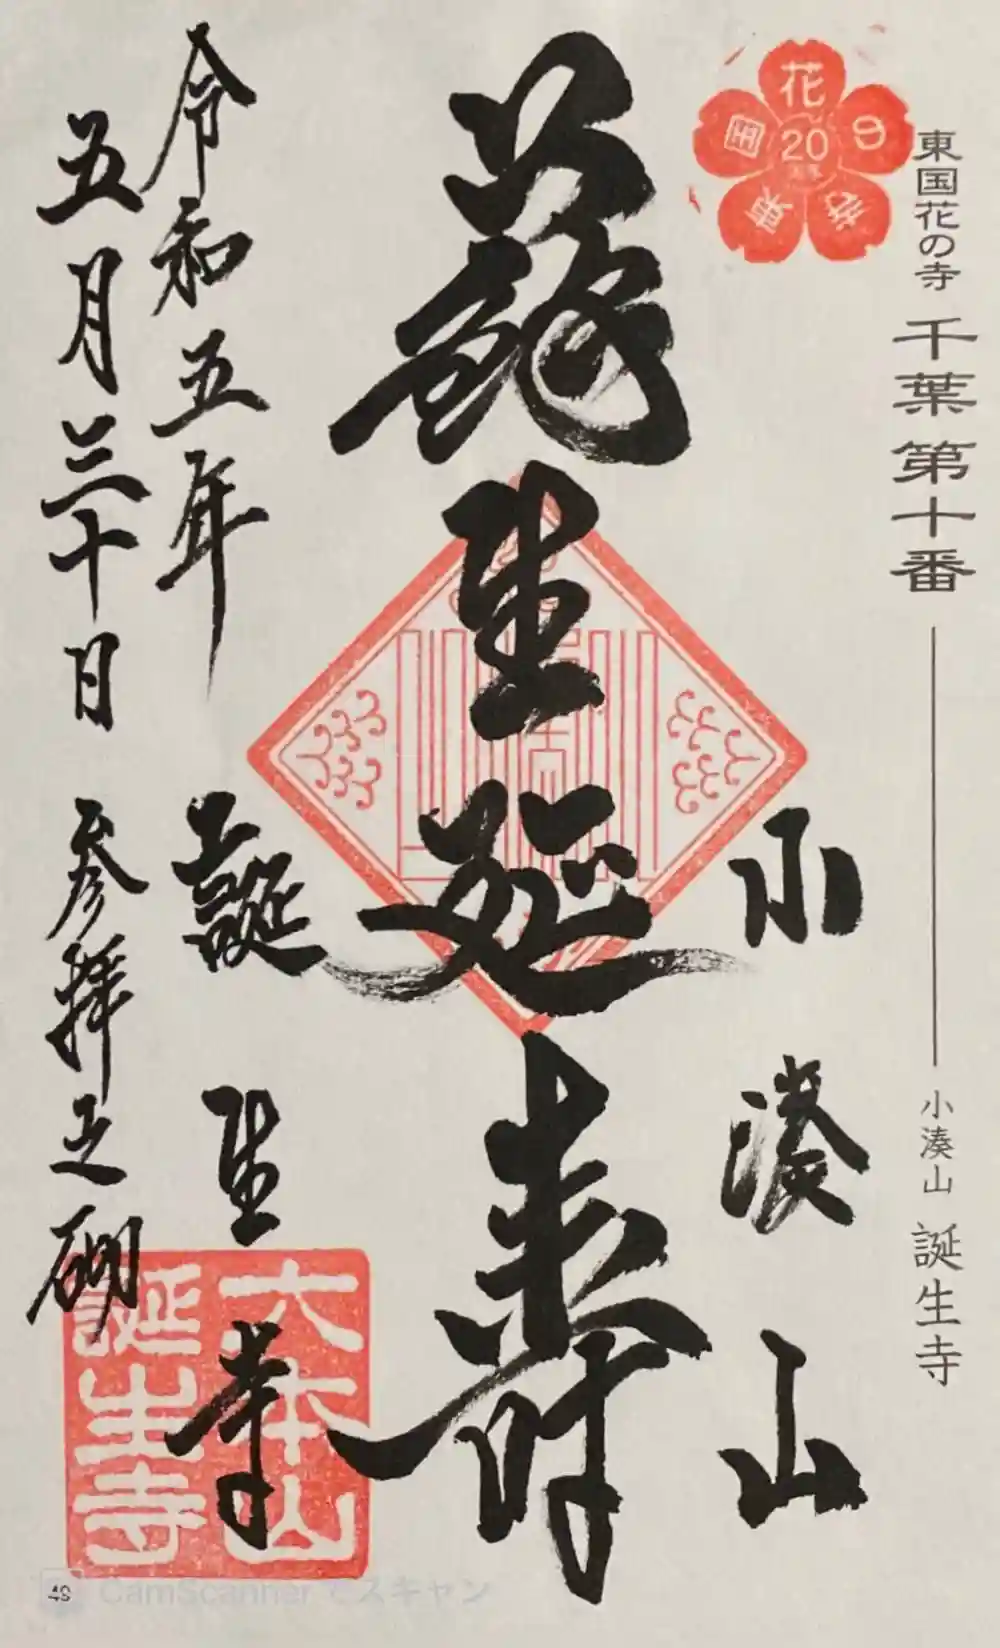 東国花の寺 千葉第十番 小湊山 誕生寺
東国花の寺
20
小湊山
蘇生延寿
誕生寺
令和五年
五月三十日 参拝之砌
大本山
誕生寺
49
CamScanner でスキャン